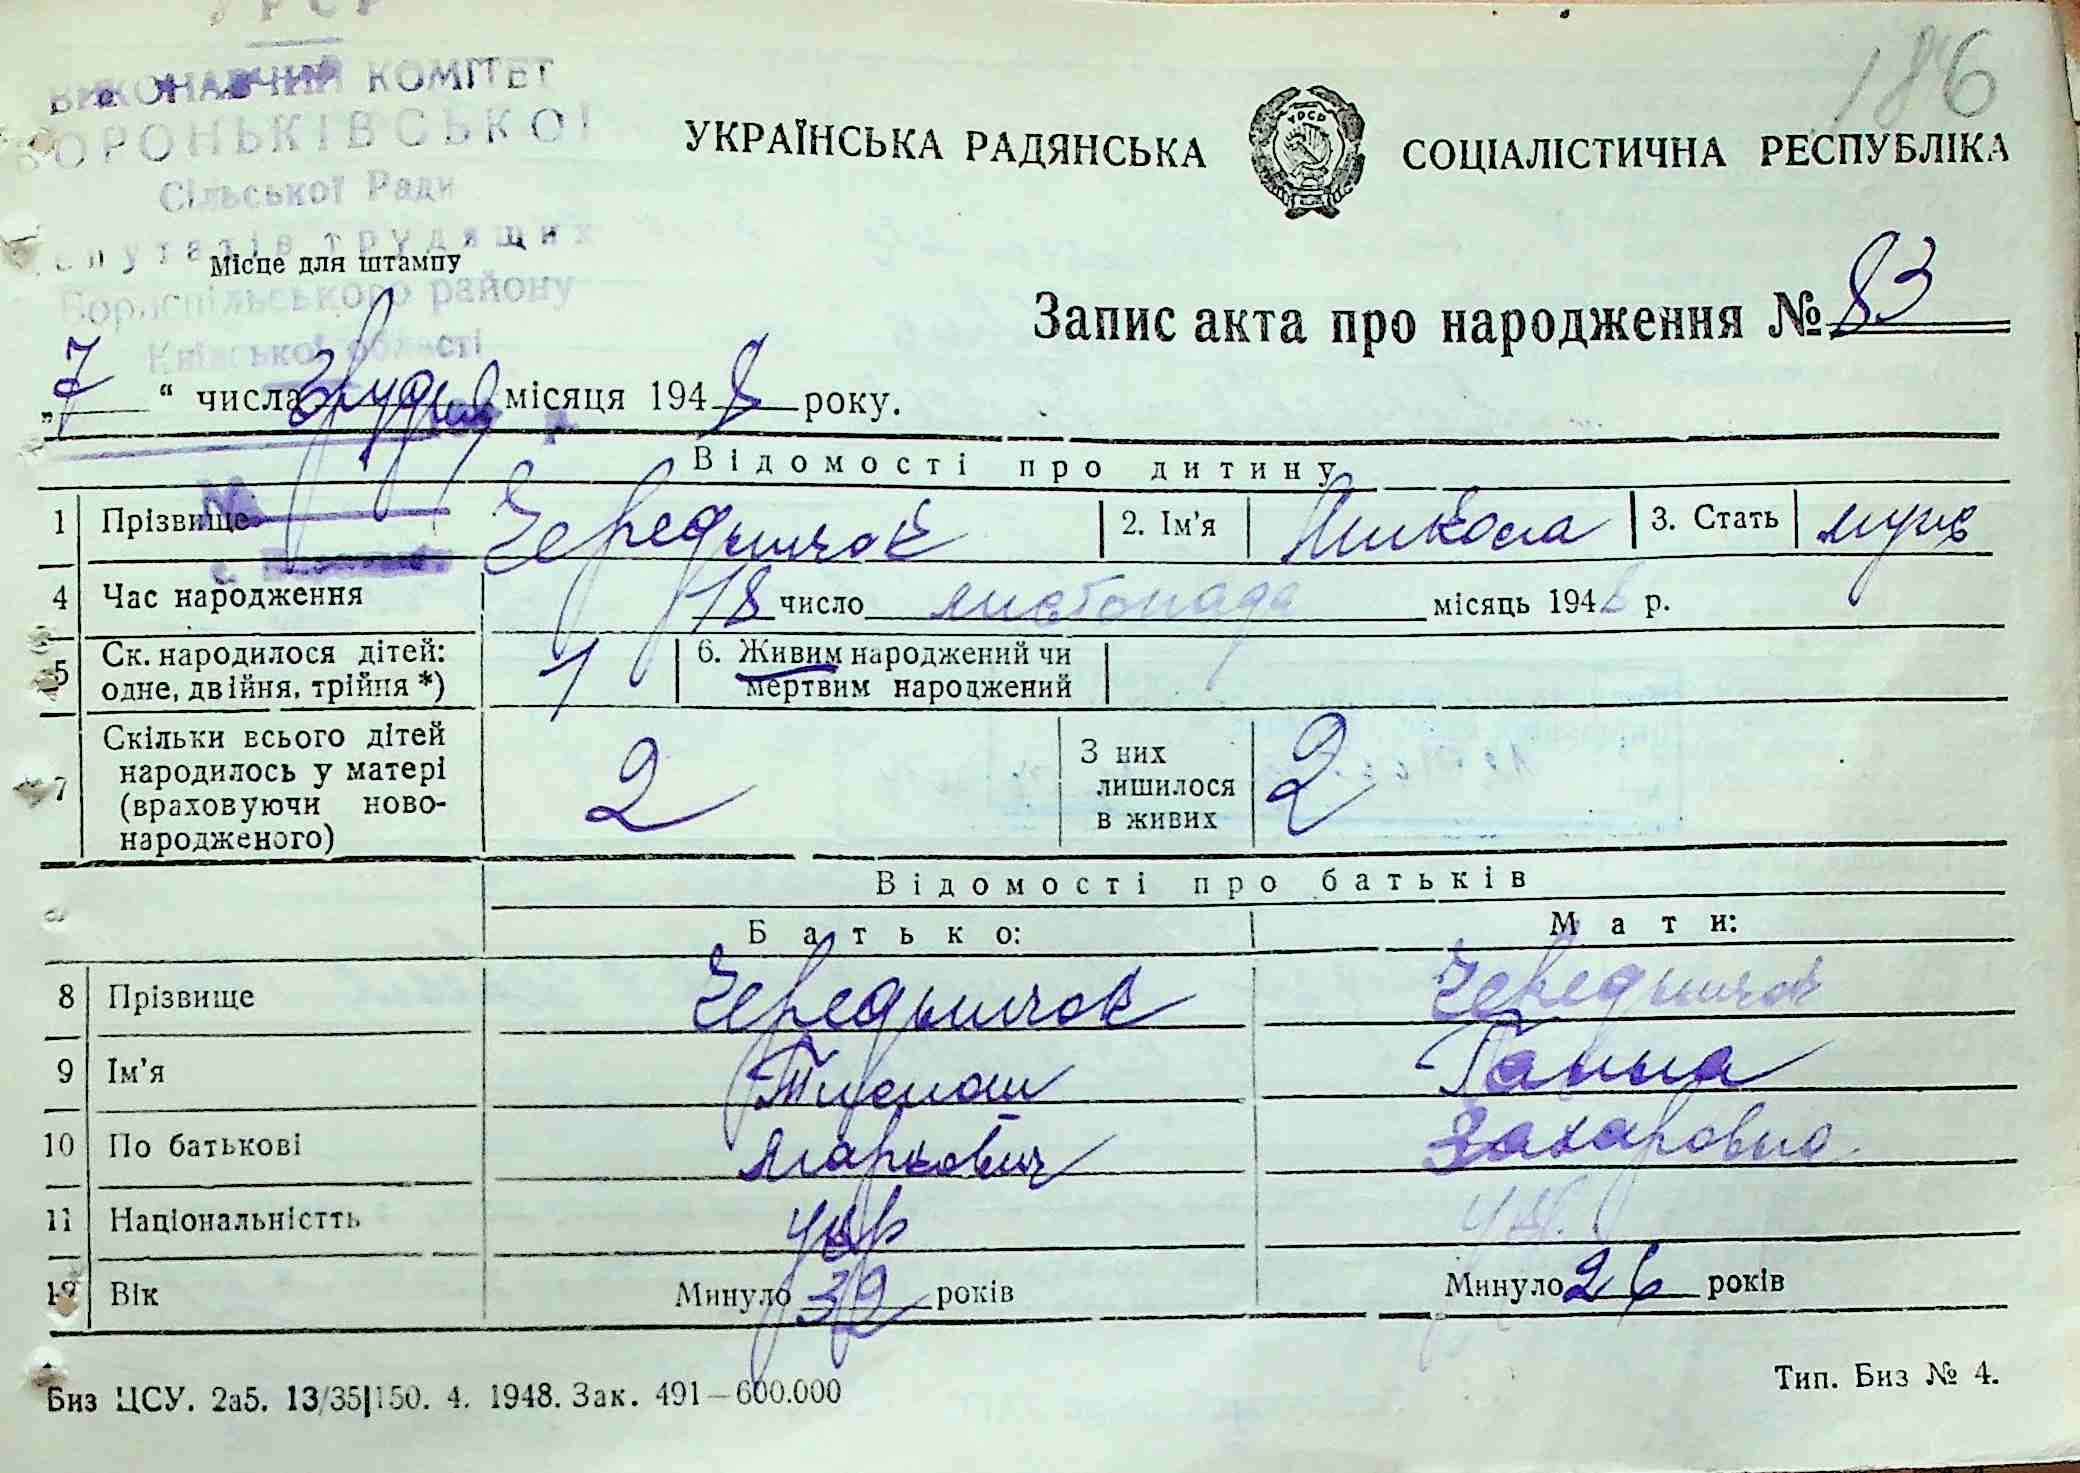 УРСР
ВИКОНАВЧИЙ КОМІТЕТ
ВОРОНЬКІВСЬКОЇ
Сільської Ради
депутатів трудящих
Бориспільського району
Київської області
186
УКРАЇНСЬКА РАДЯНСЬКА СОЦІАЛІСТИЧНА РЕСПУБЛІКА
Місце для штампу
Запис акта про народження № 83
„7“ числа грудня місяця 1948 року.
Відомості про дитину
1 Прізвище Чередничок 2. Ім'я Микола 3. Стать муж
4 Час народження 18 число листопада місяць 1948 р.
5 Ск. народилося дітей: одне, двійня, трійня *) 1 6. Живим народжений чи мертвим народжений
7 Скільки всього дітей народилось у матері (враховуючи ново-народженого) 2 З них лишилося в живих 2
Відомості про батьків
Батько: Мати:
8 Прізвище Чередничок Чередничок
9 Ім'я Ганна
10 По батькові Маркович Захаровна
11 Національністть укр укр.
12 Вік Минуло 32 років Минуло 26 років
Биз ЦСУ. 2а5. 13/35|150. 4. 1948. Зак. 491—600.000
Тип. Биз № 4.